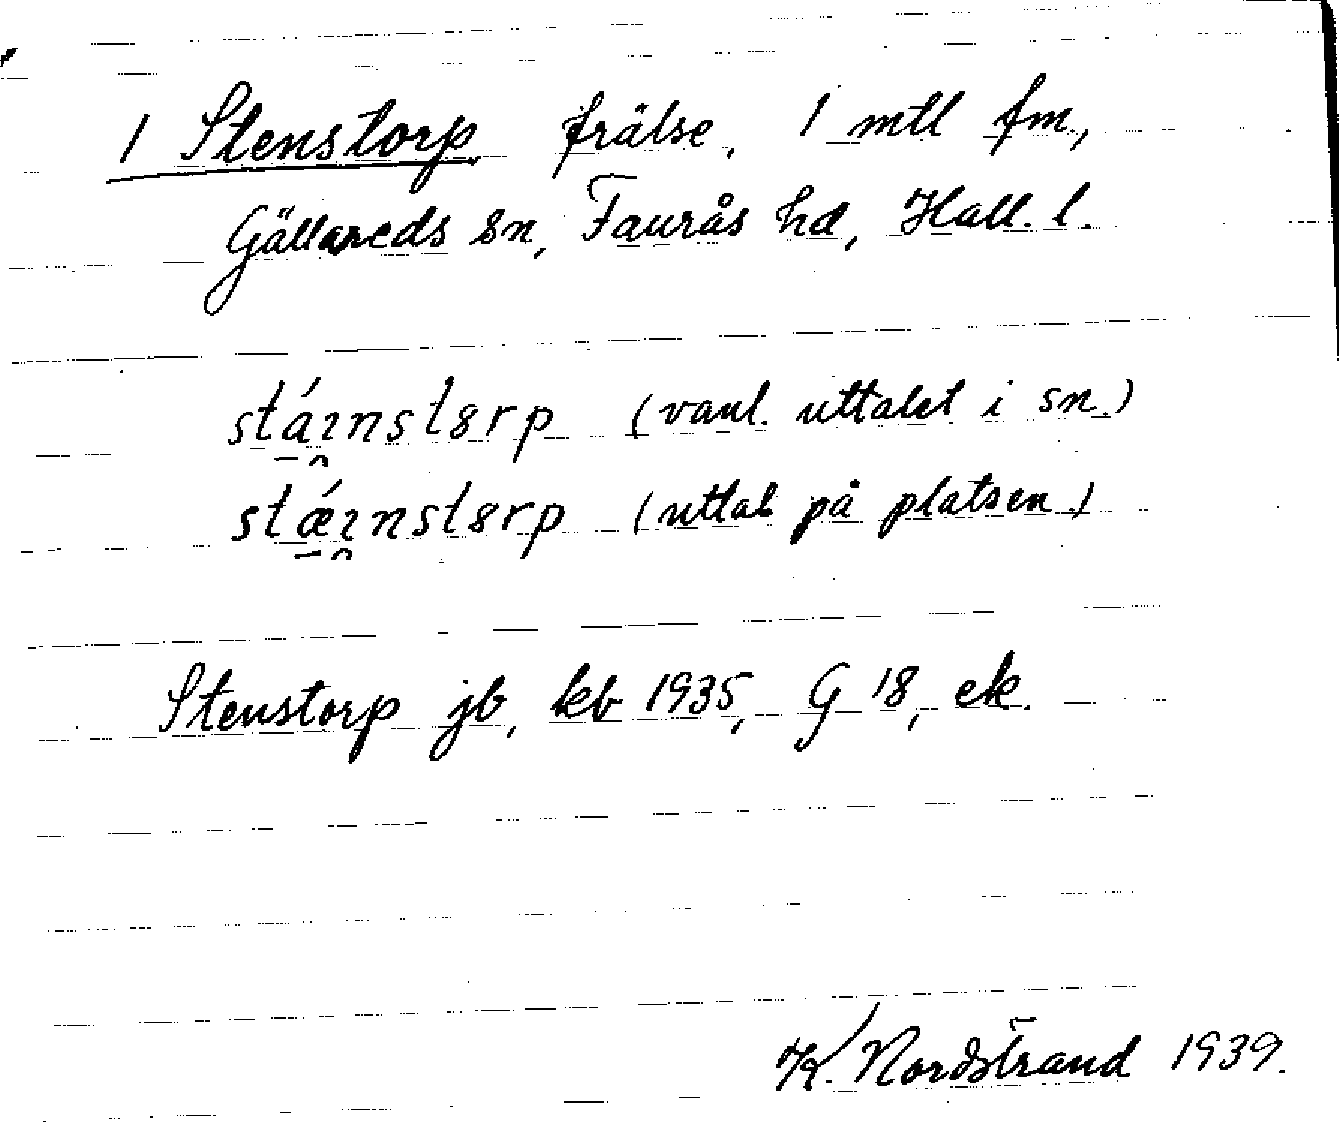 1 Stenstorp frälse, 1 mtl fm,
Gällareds sn, Faurås hd, Hall. l.
(vanl. uttalet i sn)
(uttal på platsen)
Stenstorp jb, kb 1935, G 18, ek.
K. Nordstrand 1939.